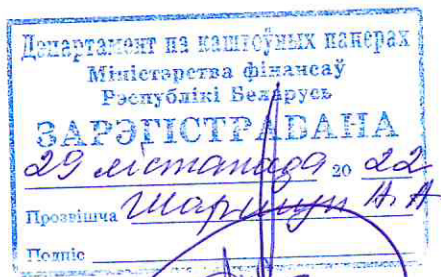 Дэпартамент па каштоўных паперах
Міністэрства фінансаў
Рэспублікі Беларусь
ЗАРЭГІСТРАВАНА
29 лістапада 20 22
Прозвішча А. А
Подпіс